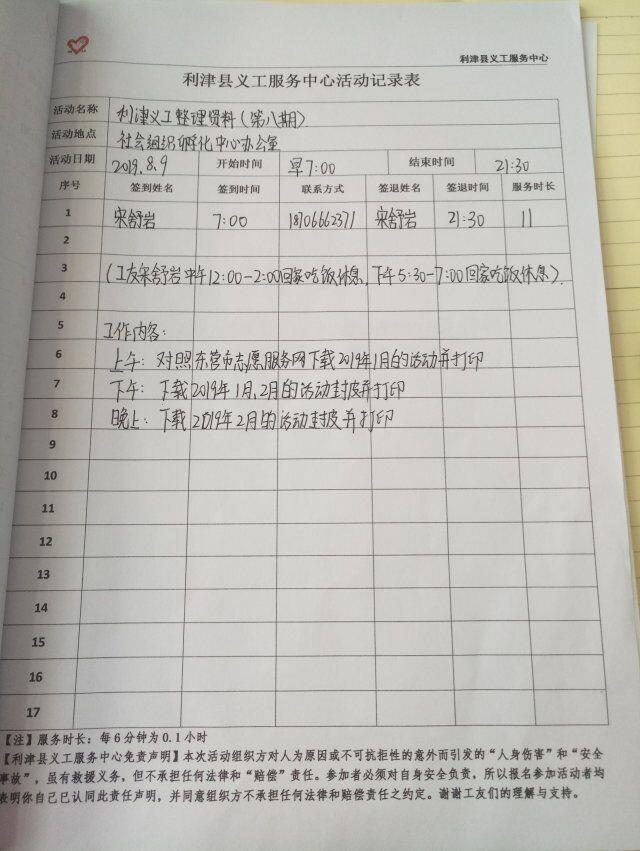 利津县义工服务中心
利津县义工服务中心活动记录表
活动名称 利津义工整理资料(第八期)
活动地点 社会组织孵化中心办公室
活动日期 2019.8.9 开始时间 早7:00 结束时间 21:30
序号 签到姓名 签到时间 联系方式 签退姓名 签退时间 服务时长
1 宋舒岩 7:00 18706662371 宋舒岩 21:30 11
2
3 (工友宋舒岩中午12:00-2:00回家吃饭休息,下午5:30-7:00回家吃饭休息).
4
5 工作内容:
6 上午:对照东营市志愿服务网下载2019年1月的活动并打印
7 下午:下载2019年1月、2月的活动封皮并打印
8 晚上:下载2019年2月的活动封皮并打印
9
10
11
12
13
14
15
16
17
【注】服务时长:每6分钟为0.1小时
【利津县义工服务中心免责声明】本次活动组织方对人为原因或不可抗拒性的意外而引发的“人身伤害”和“安全
事故”,虽有救援义务,但不承担任何法律和“赔偿”责任。参加者必须对自身安全负责,所以报名参加活动者均
表明你自己已认同此责任声明,并同意组织方不承担任何法律和赔偿责任之约定。谢谢工友们的理解与支持。